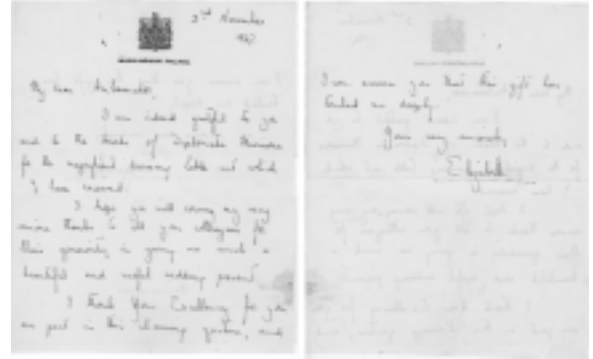 November
1947.
My dear Ambassador,
I am indeed grateful to you
and to the Heads of Diplomatic Missions
for the magnificent table set which
I have received.
I hope you will convey my very
sincere thanks to all your colleagues for
their generosity in giving me such a
beautiful and useful wedding present.
I thank Your Excellency for
own part in this charming gesture, and
I can assure you that this gift has
touched me deeply.
Yours very sincerely
Elizabeth